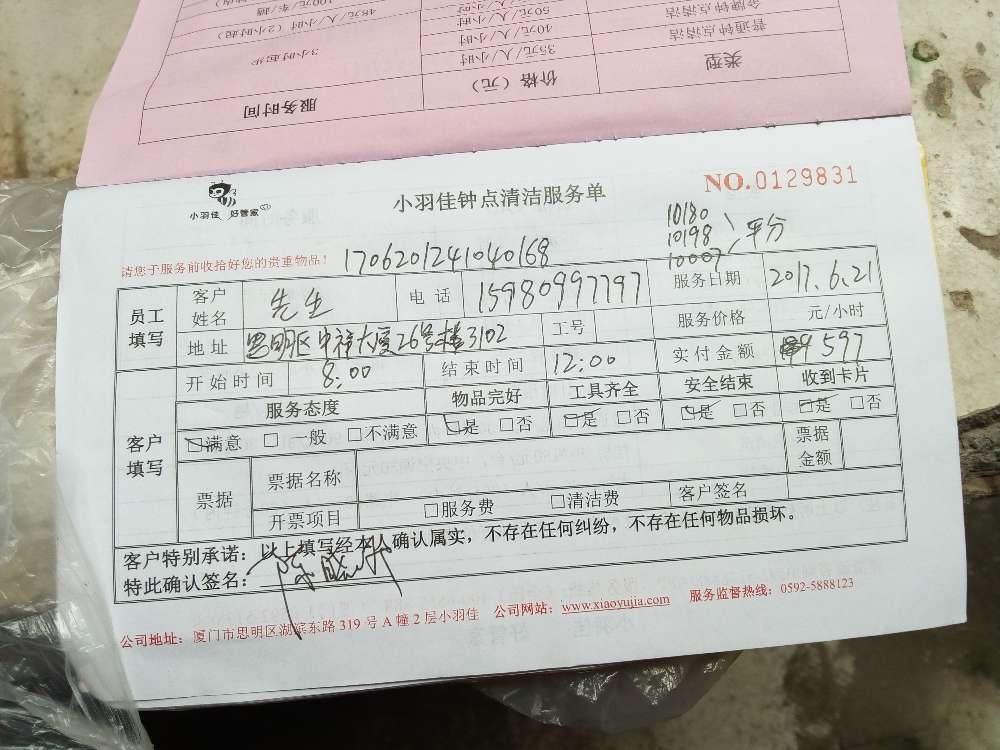 类型 价格（元） 服务时间
普通钟点清洁 35元/人/小时 3小时起步
40元/人/小时
金牌钟点清洁 50元/人/小时
48元/人/小时（2小时起）
小羽佳 好管家
小羽佳钟点清洁服务单
NO.0129831
10180
10198 平分
10007
请您于服务前收拾好您的贵重物品！ 1706201241040168
员工填写 客户姓名 先生 电话 15980997797 服务日期 2017.6.21
地址 思明区中祥大厦26号楼3102 工号 服务价格 元/小时
客户填写 开始时间 8:00 结束时间 12:00 实付金额 597
服务态度 物品完好 工具齐全 安全结束 收到卡片
☑满意 □ 一般 □不满意 ☑是 □否 ☑是 □否 ☑是 □否 ☑是 □否
票据 票据名称 票据金额
开票项目 □服务费 □清洁费 客户签名
客户特别承诺：以上填写经本人确认属实，不存在任何纠纷，不存在任何物品损坏。
特此确认签名：
公司地址：厦门市思明区湖滨东路 319 号 A 幢 2 层小羽佳 公司网站：www.xiaoyujia.com 服务监督热线：0592-5888123